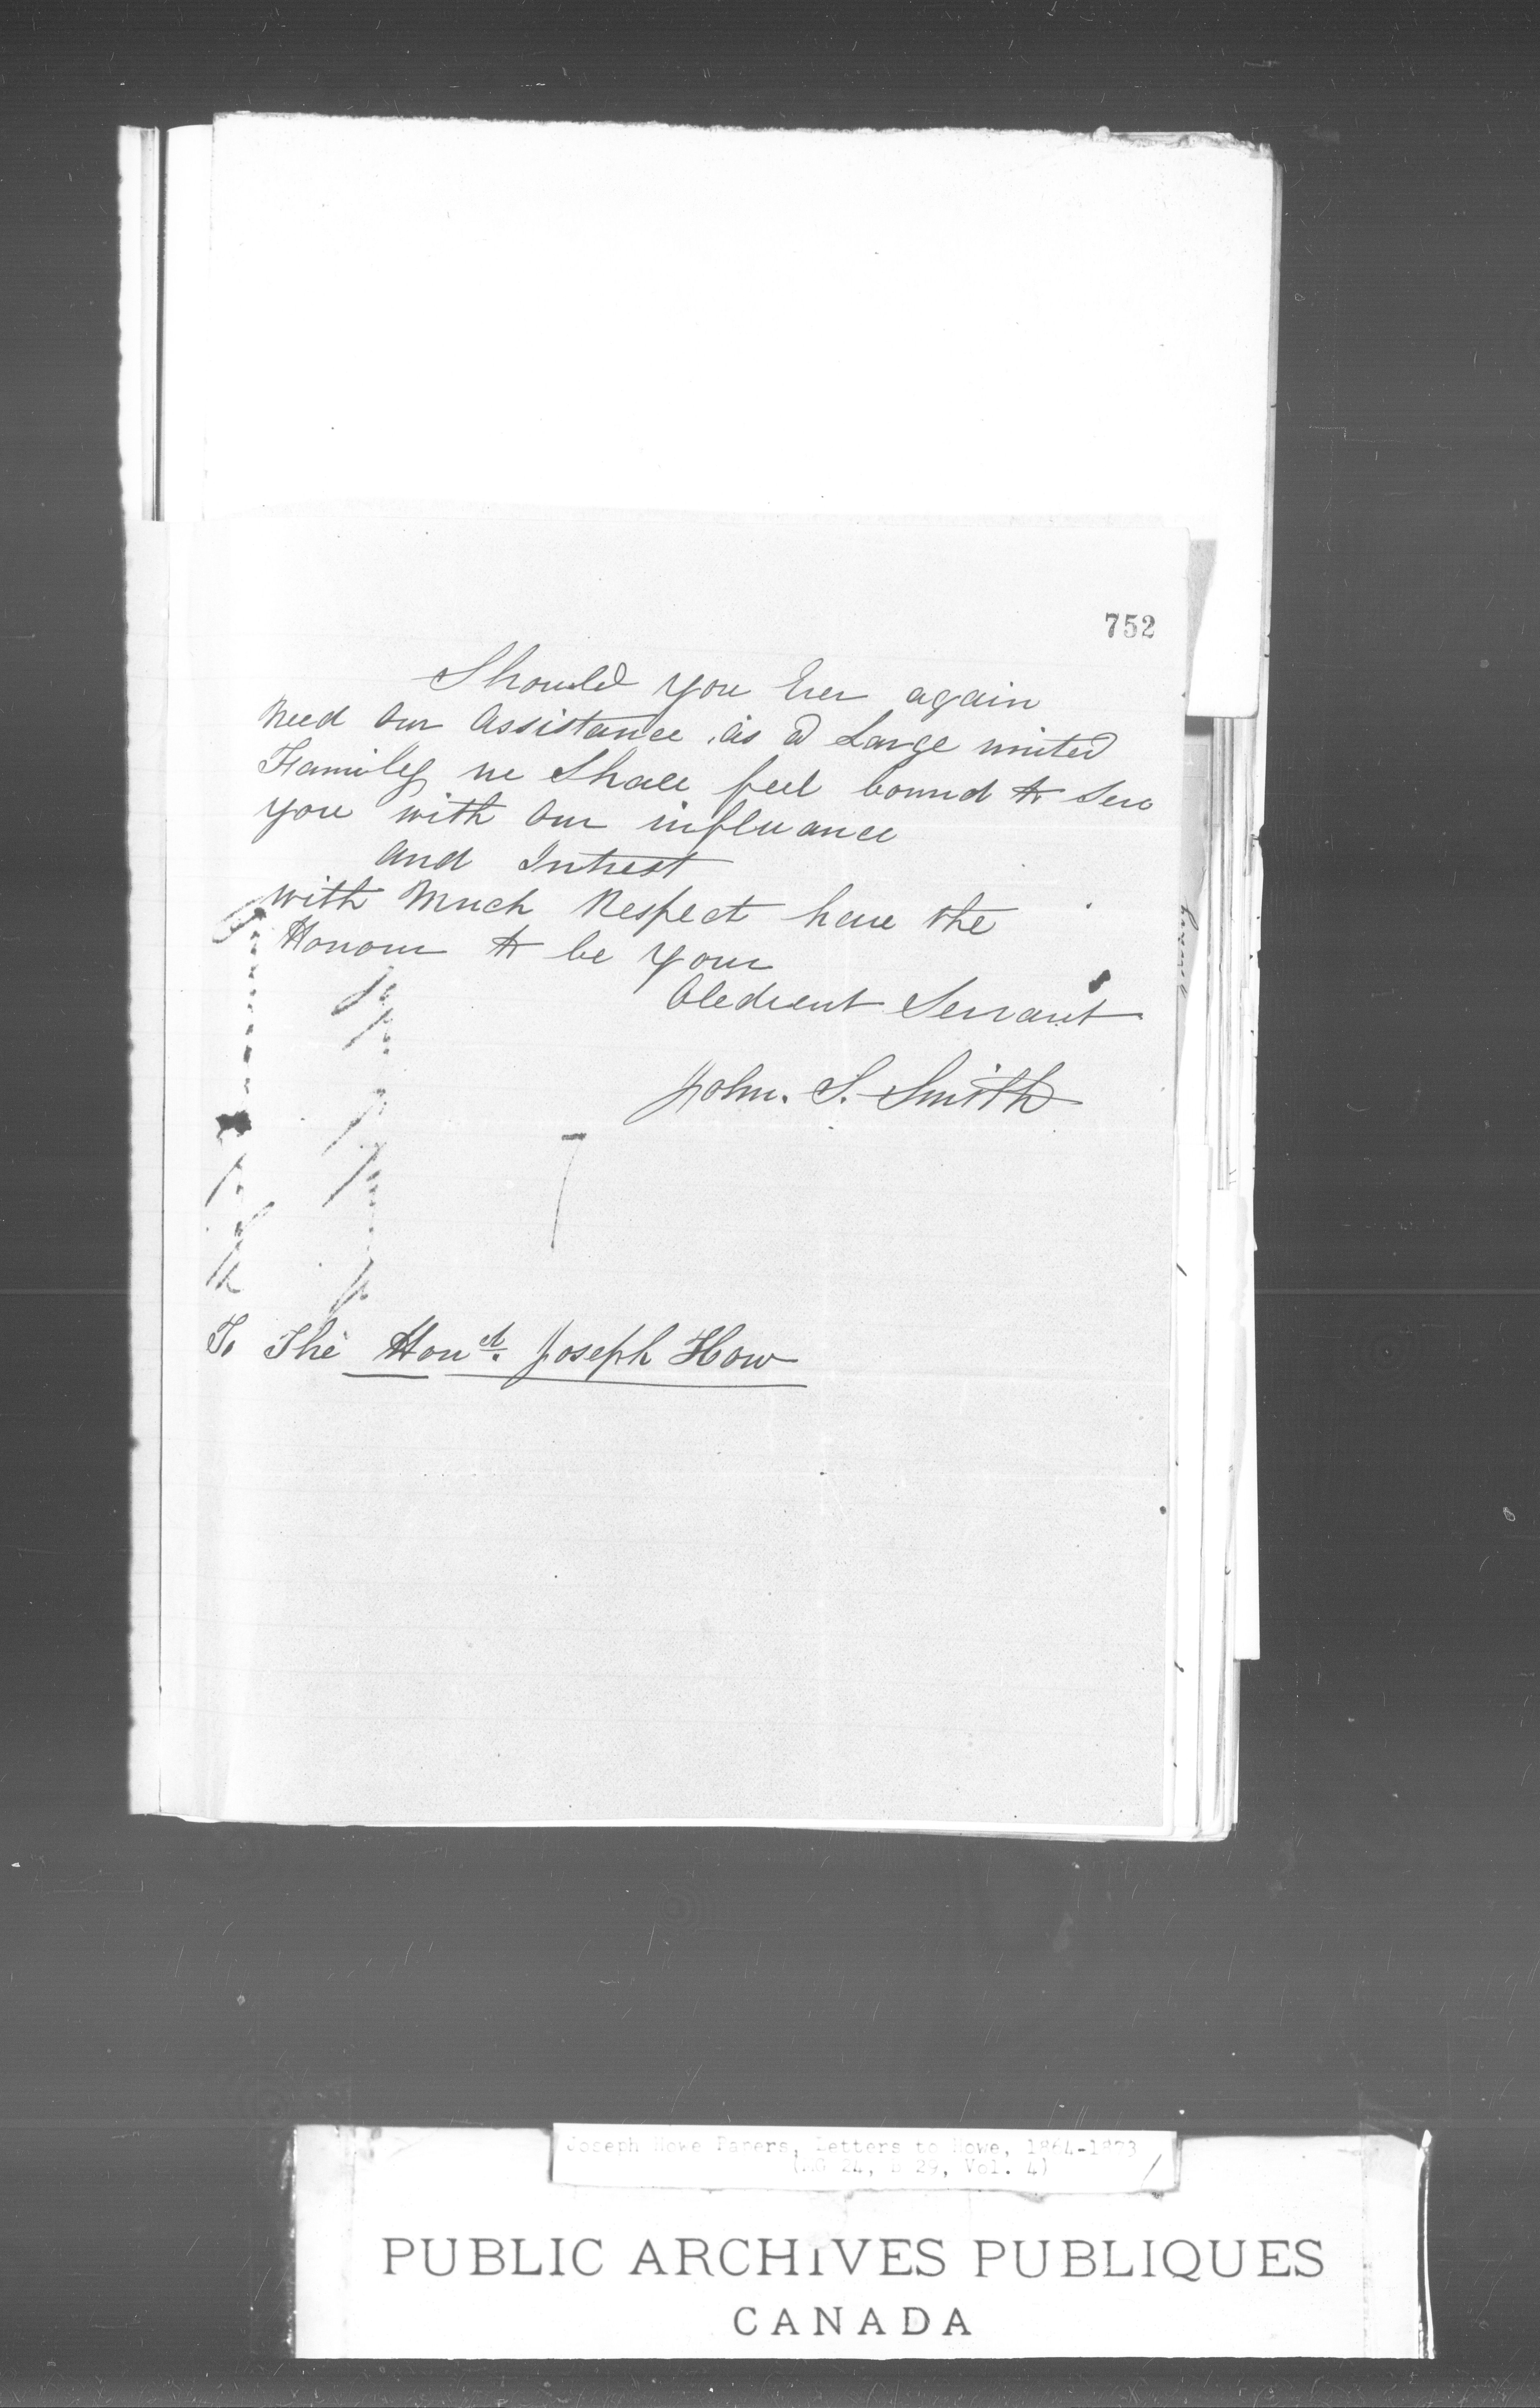 752
Should you Ever again
Need Our Assistance, as a Large united
Family we Shall feel bound to Serv
you with Our influance
and Intrest
with Much Respect have the
Honour to be your
Obedient Servant
John. S. Smith
To The Hon Joseph How
Joseph Howe Papers, Letters to Howe, 1864-1873
(MG 24, B 29, Vol. 4)
PUBLIC ARCHIVES PUBLIQUES
CANADA